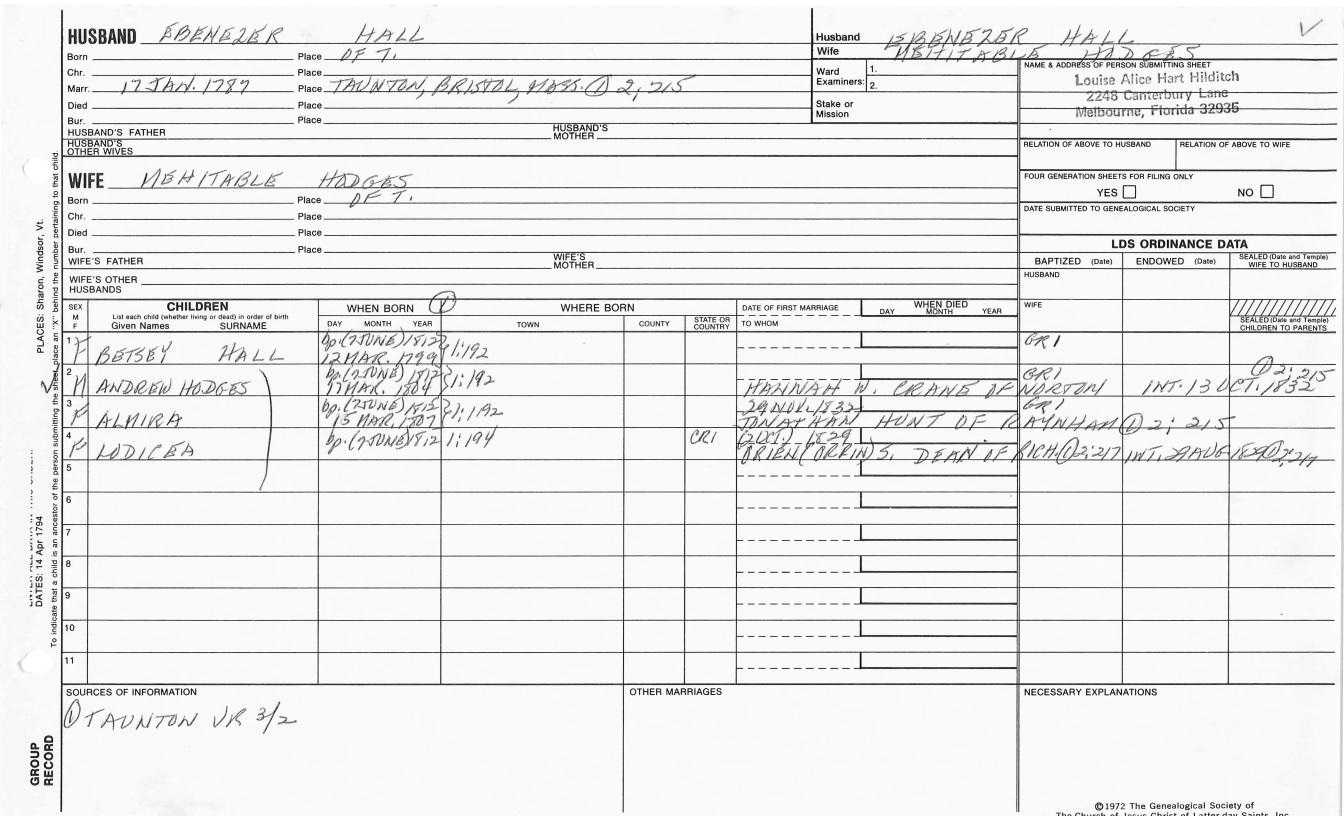 HUSBAND EBENEZER HALL
Born Place OF T.
Chr. Place
Marr. 17 JAN. 1787 Place TAUNTON, BRISTOL, MASS. ① 2; 215
Died Place
Bur. Place
HUSBAND'S FATHER HUSBAND'S MOTHER
HUSBAND'S OTHER WIVES
Husband EBENEZER HALL
Wife MEHITABLE HODGES
Ward Examiners: 1.
2.
Stake or Mission
NAME & ADDRESS OF PERSON SUBMITTING SHEET
Louise Alice Hart Hilditch
2248 Canterbury Lane
Melbourne, Florida 32935
RELATION OF ABOVE TO HUSBAND RELATION OF ABOVE TO WIFE
FOUR GENERATION SHEETS FOR FILING ONLY
YES NO
DATE SUBMITTED TO GENEALOGICAL SOCIETY
WIFE MEHITABLE HODGES
Born Place OF T.
Chr. Place
Died Place
Bur. Place
WIFE'S FATHER WIFE'S MOTHER
WIFE'S OTHER HUSBANDS
LDS ORDINANCE DATA
BAPTIZED (Date) ENDOWED (Date) SEALED (Date and Temple) WIFE TO HUSBAND
HUSBAND
WIFE
SEALED (Date and Temple) CHILDREN TO PARENTS
SEX M F CHILDREN
List each child (whether living or dead) in order of birth
Given Names SURNAME
WHEN BORN ① WHERE BORN
DAY MONTH YEAR TOWN COUNTY STATE OR COUNTRY
DATE OF FIRST MARRIAGE
TO WHOM
WHEN DIED
DAY MONTH YEAR
1 F BETSEY HALL bp. (2 JUNE) 1812 GR1
12 MAR. 1799 1:192
2 M ANDREW HODGES bp. (2 JUNE) 1812 GR1 ① 2; 215
17 MAR. 1804 1:192 HANNAH W. CRANE OF NORTON INT. 13 OCT. 1832
3 F ALMIRA bp. (2 JUNE) 1812 29 NOV. 1832 GR1
15 MAR. 1807 1:192 JONATHAN HUNT OF RAYNHAM ① 2; 215
4 F LODICEA bp. (2 JUNE) 1812 1:194 CR1 (2 OCT.) 1829
ORIEN (ORRIN) S. DEAN OF RICH. ① 2:217 INT. 29 AUG 1829 ① 2:217
5
6
7
8
9
10
11
SOURCES OF INFORMATION
① TAUNTON VR 3/2
OTHER MARRIAGES
NECESSARY EXPLANATIONS
©1972 The Genealogical Society of
The Church of Jesus Christ of Latter-day Saints, Inc.
PLACES: Sharon, Windsor, Vt.
DATES: 14 Apr 1794
To indicate that a child is an ancestor of the person submitting the sheet, place an "X" behind the number pertaining to that child.
GROUP RECORD